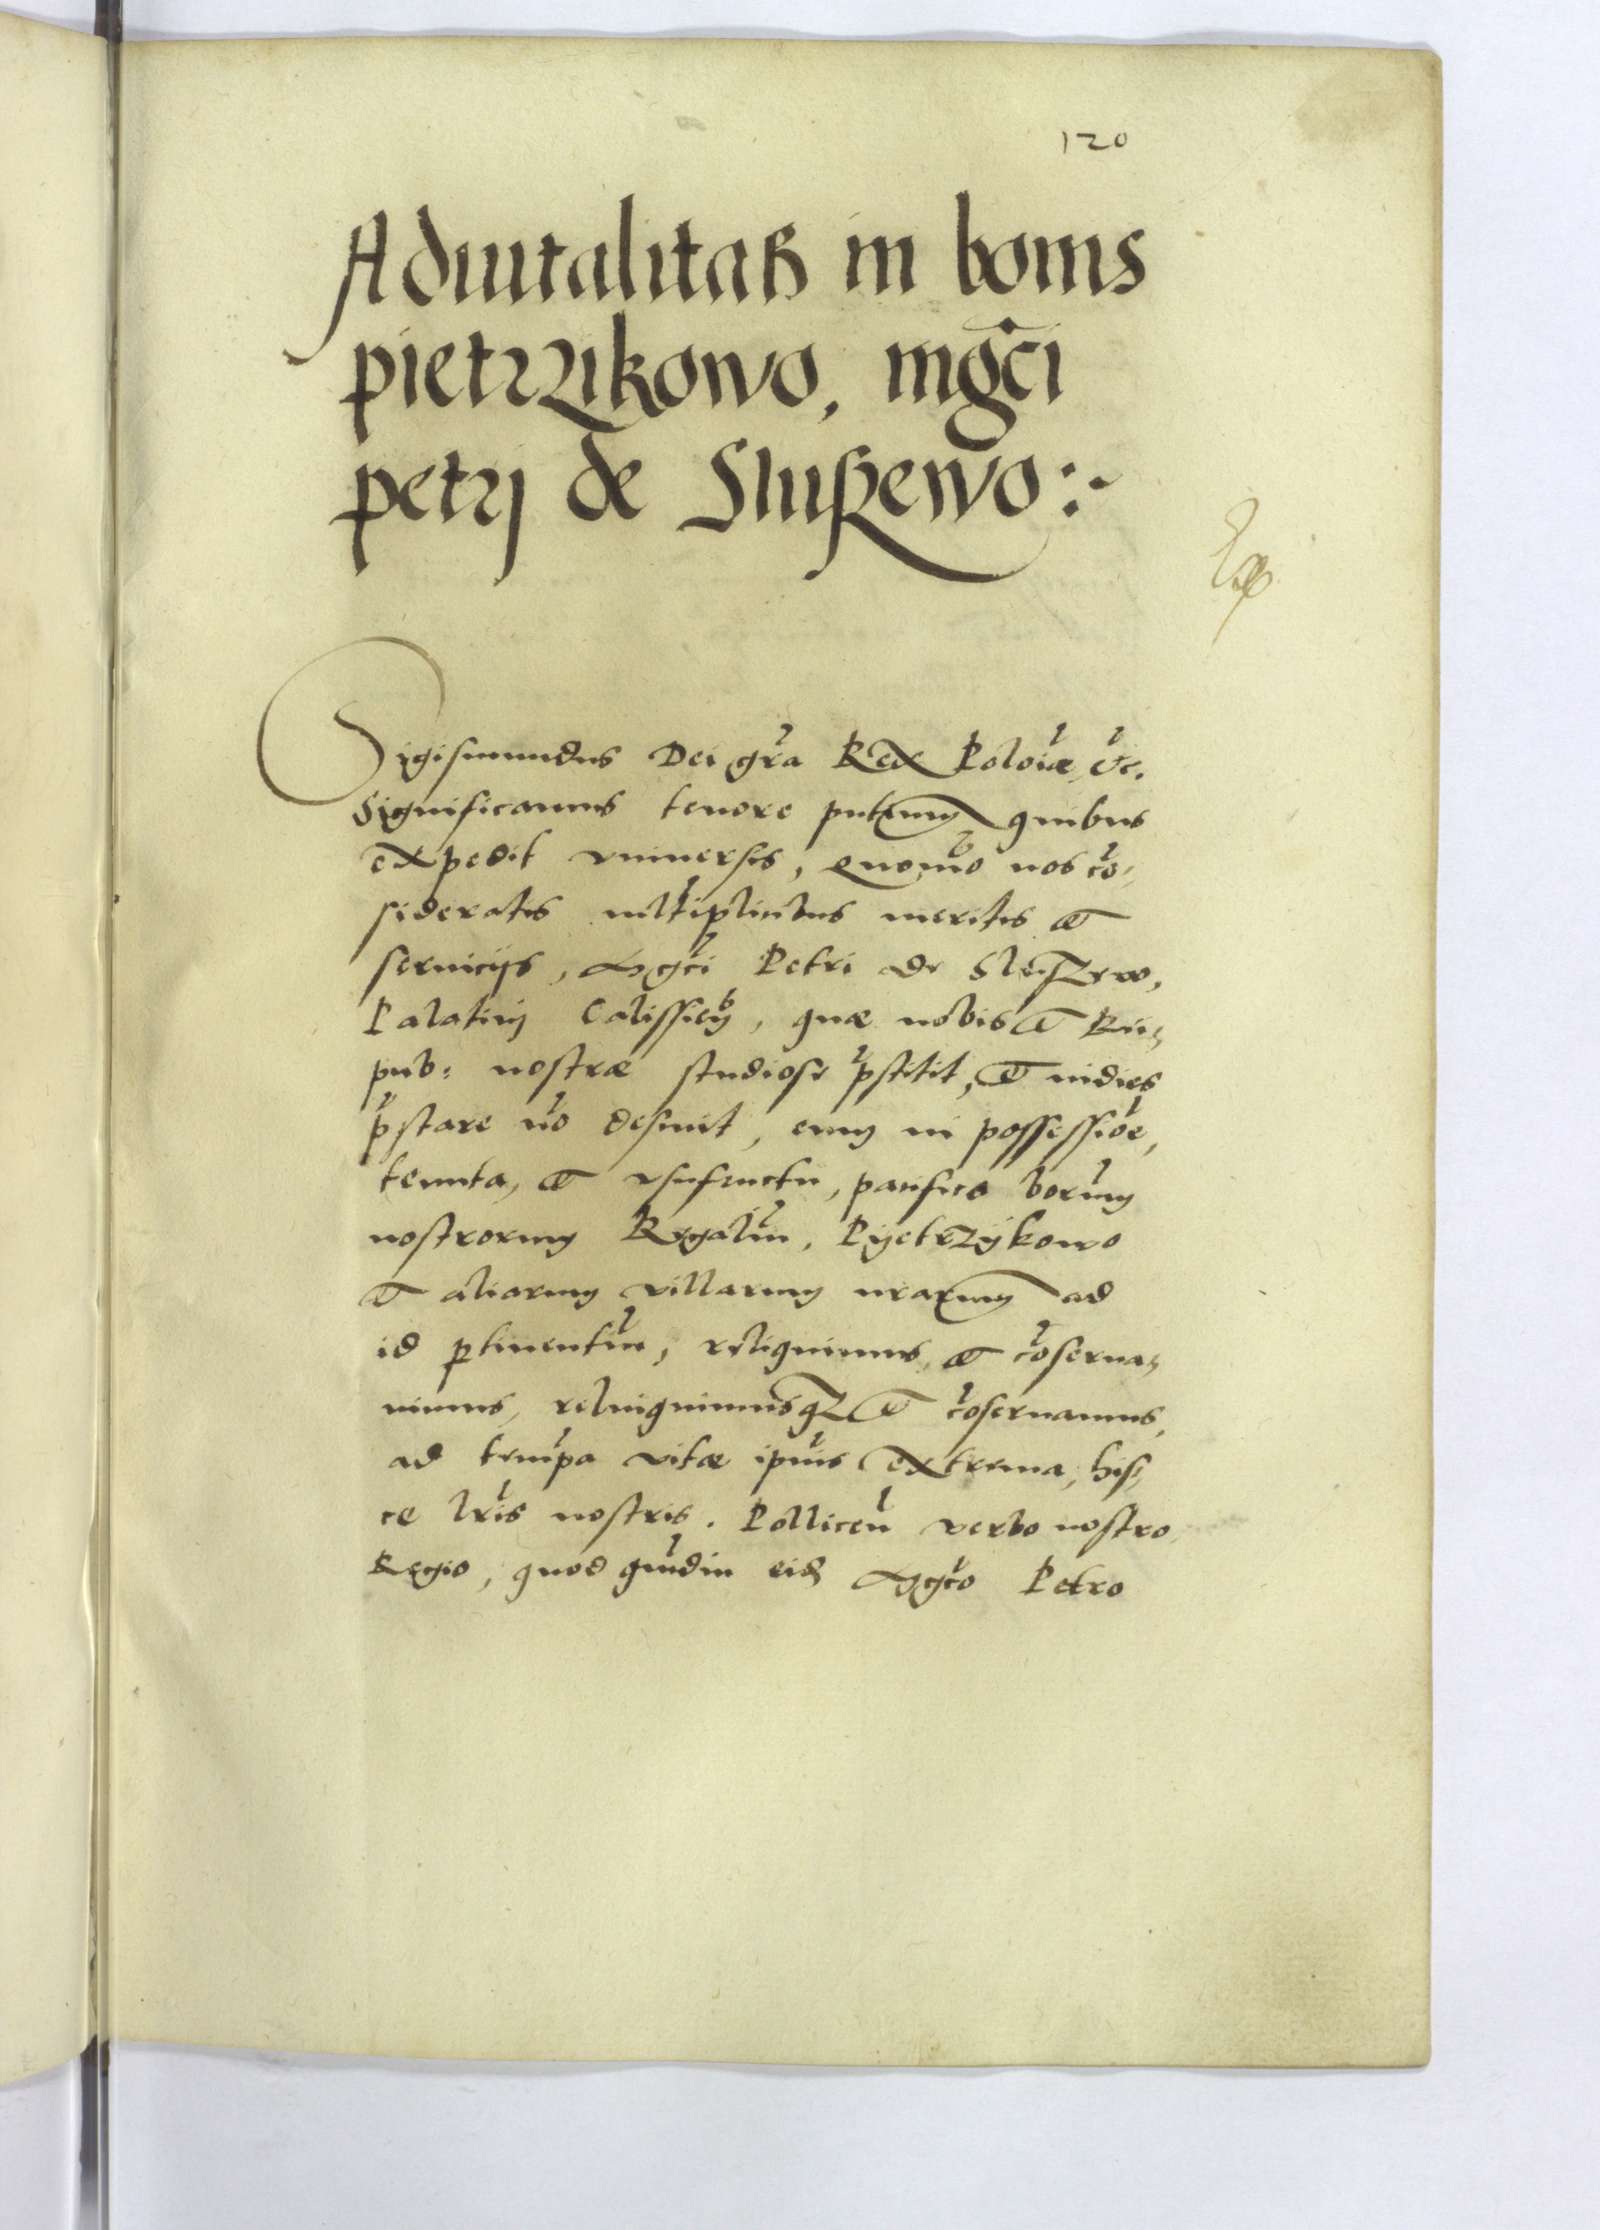 120
Aduitalitas in bonis
pietrzikowo, mgci
petrj de Slußewo:~
Sigismundus Dei gra Rex Poloiæ, &c.
Significamus tenore pntium quibus
expedit vniuersis, Quomo nos co-
sideratis mltiplicibus meritis et
seruicijs, Mgci Petri de Slußewo,
Palatinj Calissien, quæ nobis et Rei-
pub: nostræ studiose pstitit, et indies
pstare no desinit, eum in possessioe,
tenuta, et vsufructu, pacifico bonrum
nostrorum Regaliu, Pyetrzykowo
et aliarum villarum nrarum ad
id ptinentiu, reliquimus, et coserua-
uimus, relinquimusqz et coseruamus,
ad tempa vitæ ipius extrema, his-
ce lris nostris. Pollicem verbo nostro
Regio, quod quidiu eid Mgco Petro